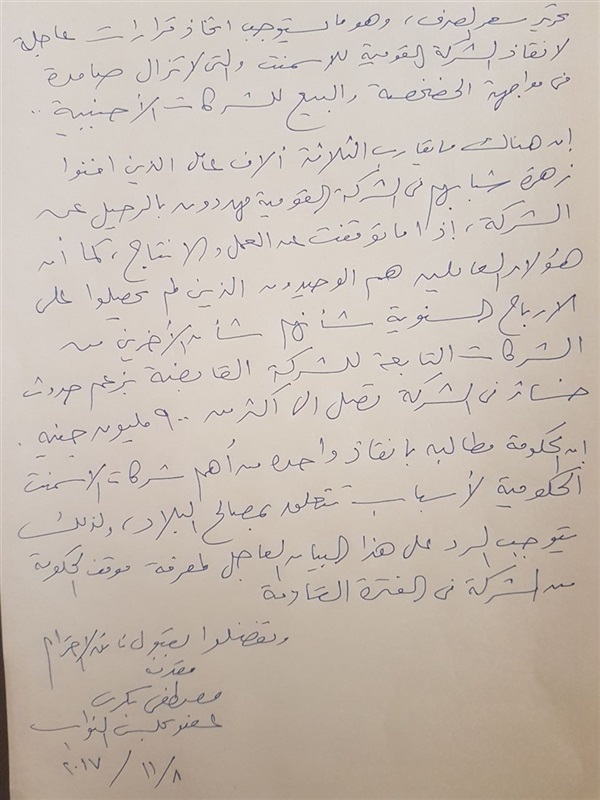 تحرير سعر الصرف، وهو ما يستوجب اتخاذ قرارات عاجلة
لانقاذ الشركة القومية للاسمنت والتى لاتزال صامدة
فى مواجهة الخصخصة والبيع للشركات الأجنبية ..
إن هناك مايقارب الثلاثة ألاف عامل الذين افنوا
زهرة شبابهم فى الشركة القومية مهددون بالرحيل عن
الشركة، إذا ماتوقفت عن العمل والانتاج، كما أن
هؤلاء العاملين هم الوحيدون الذين لم يحصلوا على
الارباح السنوية شأنهم شأن الأخرين من
الشركات التابعة للشركة القابضة بزعم حدوث
خسائر فى الشركة تصل الى اكثر من ٩٠٠ مليون جنيه .
إن الحكومة مطالبه بانقاذ واحدة من أهم شركات الاسمنت
الحكومية لأسباب تتعلق بمصالح البلاد، ولذلك
يتوجب الرد على هذا البيان العاجل لمعرفة موقف الحكومة
من الشركة فى الفترة القادمة
وتفضلوا بقبول فائق الاحترام
مقدمه
مصطفى بكرى
عضو مجلس النواب
٨ / ١١ / ٢٠١٧